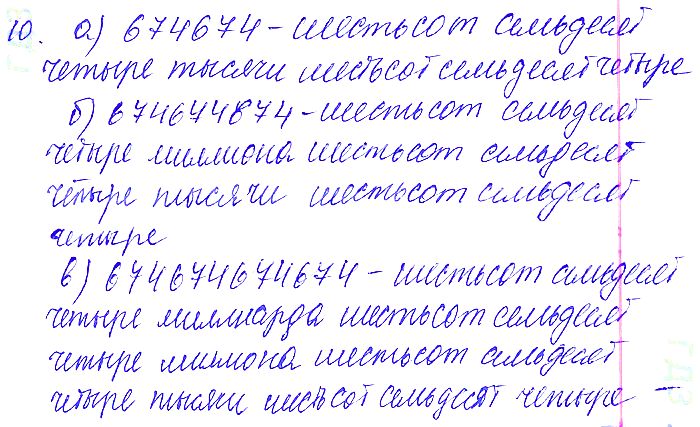 10. а) 674674 - шестьсот семьдесят
четыре тысячи шестьсот семьдесят четыре
б) 674674874 - шестьсот семьдесят
четыре миллиона шестьсот семьдесят
четыре тысячи шестьсот семьдесят
четыре
в) 674674674674 - шестьсот семьдесят
четыре миллиарда шестьсот семьдесят
четыре миллиона шестьсот семьдесят
четыре тысячи шестьсот семьдесят четыре -